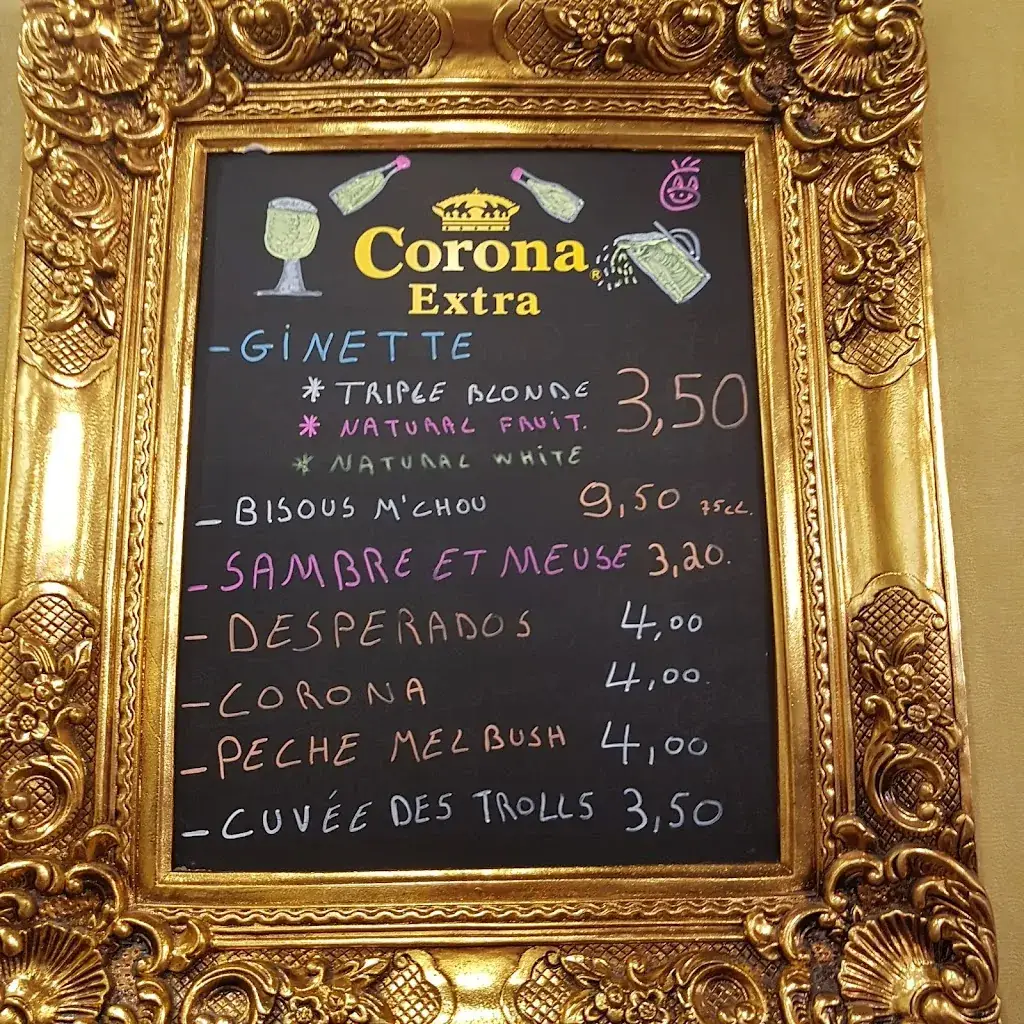 Corona
Extra
- GINETTE
* TRIPLE BLONDE 3,50
* NATURAL FRUIT.
* NATURAL WHITE
- BISOUS M'CHOU 9,50 75CL.
- SAMBRE ET MEUSE 3,20.
- DESPERADOS 4,00
- CORONA 4,00.
- PECHE MEL BUSH 4,00
- CUVÉE DES TROLLS 3,50